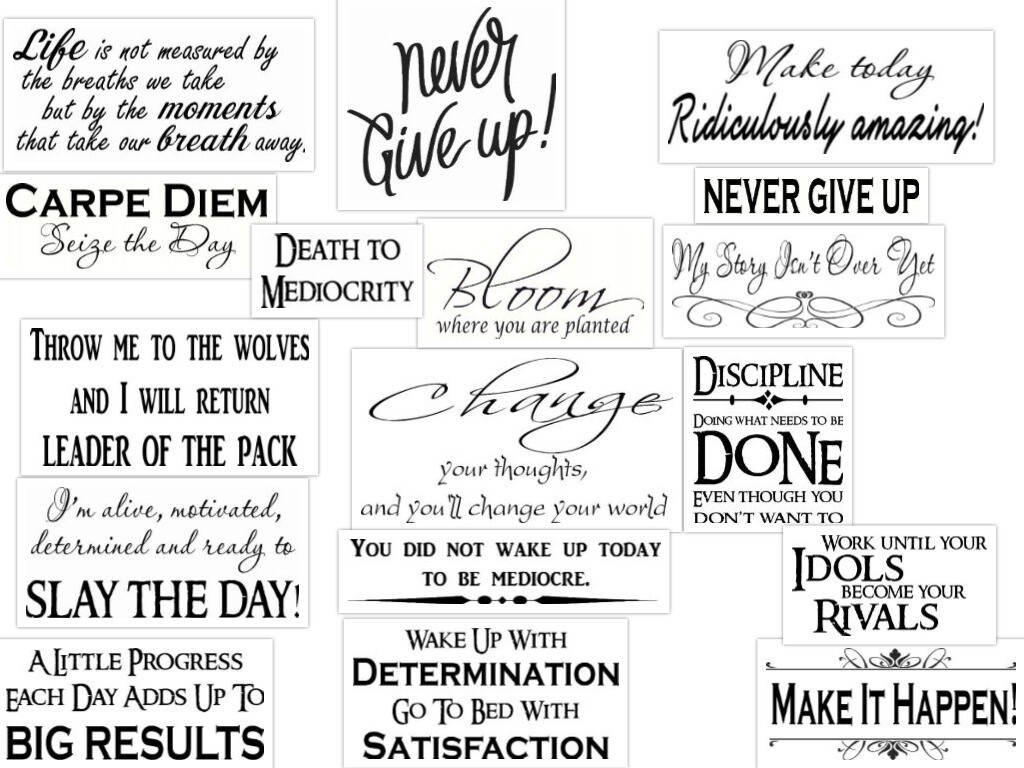 Life is not measured by
the breaths we take
but by the moments
that take our breath away.
never
Give up!
Make today
Ridiculously amazing!
CARPE DIEM
Seize the Day
NEVER GIVE UP
DEATH TO
MEDIOCRITY
Bloom
where you are planted
My Story Isn't Over Yet
THROW ME TO THE WOLVES
AND I WILL RETURN
LEADER OF THE PACK
Change
your thoughts,
and you'll change your world
DISCIPLINE
DOING WHAT NEEDS TO BE
DONE
EVEN THOUGH YOU
DON'T WANT TO
I'm alive, motivated,
determined and ready to
SLAY THE DAY!
YOU DID NOT WAKE UP TODAY
TO BE MEDIOCRE.
WORK UNTIL YOUR
IDOLS
BECOME YOUR
RIVALS
A LITTLE PROGRESS
EACH DAY ADDS UP TO
BIG RESULTS
WAKE UP WITH
DETERMINATION
GO TO BED WITH
SATISFACTION
MAKE IT HAPPEN!